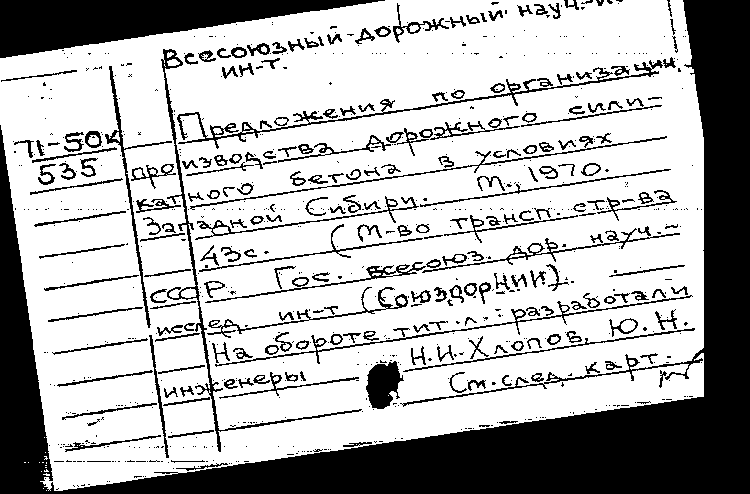 Всесоюзный дорожный науч.-и
ин-т.
Предложения по организации
71-50к
535
производства дорожного сили-
катного бетона в условиях
Западной Сибири. М., 1970.
43с. (М-во трансп. стр-ва
СССР. Гос. всесоюз. дор. науч.-
исслед. ин-т (Союздорнии).
На обороте тит. л.: разработали
инженеры Н.И. Хлопов, Ю.Н.
См. след. карт.